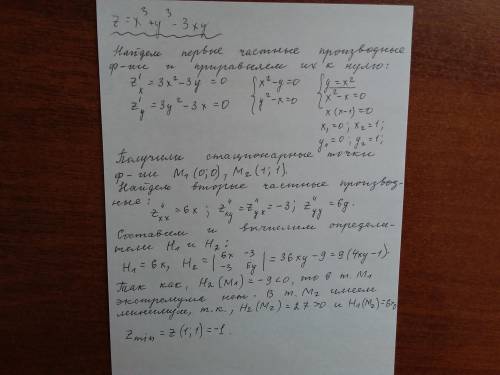 z = x³ + y³ - 3xy
Найдем первые частные производные
ф-ии и приравняем их к нулю:
z'x = 3x² - 3y = 0 { x² - y = 0 { y = x²
z'y = 3y² - 3x = 0 { y² - x = 0 x² - x = 0
x(x-1) = 0
x₁ = 0; x₂ = 1;
y₁ = 0; y₂ = 1;
Получили стационарные точки
ф-ии M₁(0;0), M₂(1;1).
Найдем вторые частные производ-
ные:
z''xx = 6x; z''xy = z''yx = -3; z''yy = 6y.
Составим и вычислим определи-
тели H₁ и H₂:
H₁ = 6x, H₂ = |6x -3| = 36xy - 9 = 9(4xy - 1).
|-3 6y|
Так как, H₂(M₁) = -9 < 0, то в т. M₁
экстремума нет. В т. M₂ имеем
минимум, т.к., H₂(M₂) = 27 > 0 и H₁(M₂) = 6>
z min = z(1;1) = -1.